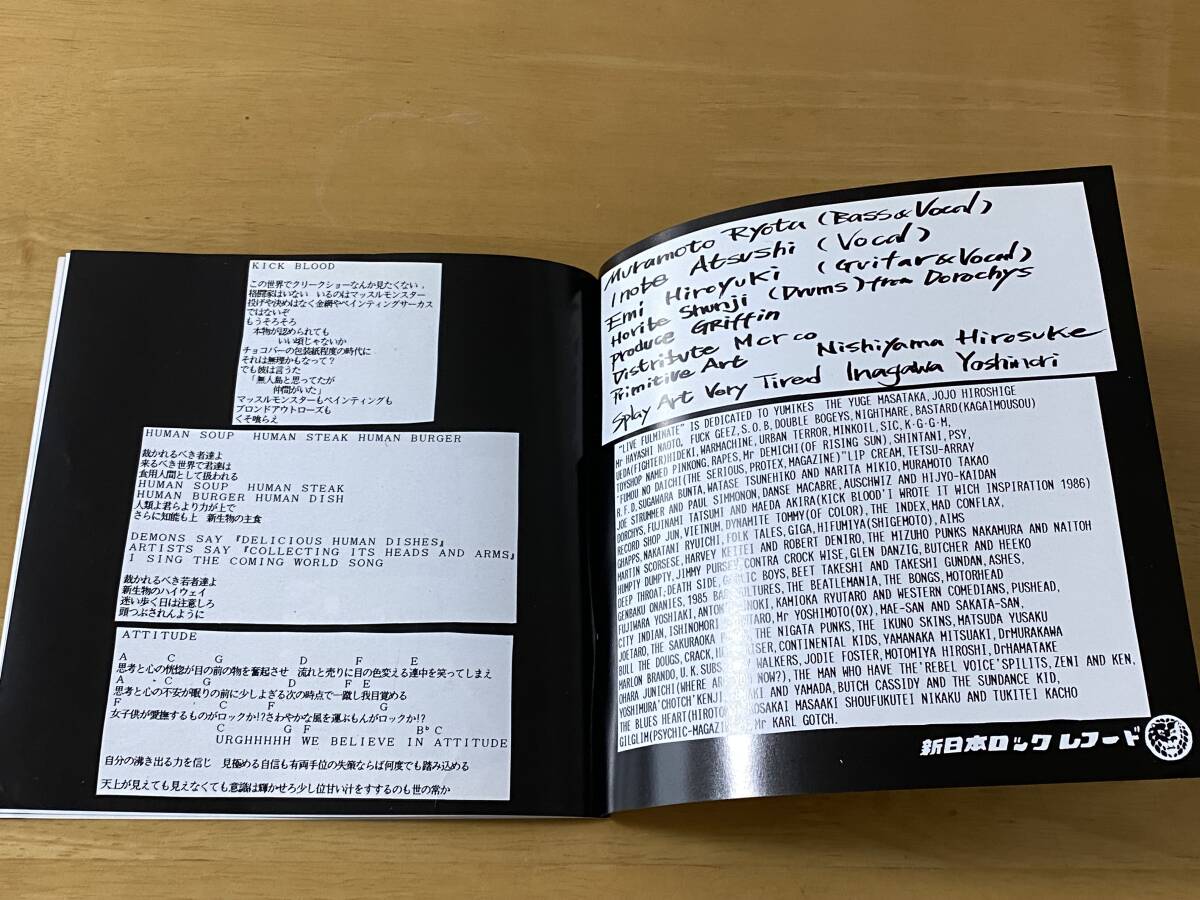 KICK BLOOD
この世界でクリークショーなんか見たくない,
格闘家はいない いるのはマッスルモンスター
投げや決めはなく金網やペインティングサーカス
ではないぞ
もうそろそろ
本物が認められても
いい頃じゃないか
チョコバーの包装紙程度の時代に
それは無理かもなって?
でも彼は言うた
「無人島と思ってたが
仲間がいた」
マッスルモンスターもペインティングも
ブロンドアウトローズも
くそ喰らえ
HUMAN SOUP HUMAN STEAK HUMAN BURGER
裁かれるべき者達よ
来るべき世界で君達は
食用人間として扱われる
HUMAN SOUP HUMAN STEAK
HUMAN BURGER HUMAN DISH
人類よ君らより力が上で
さらに知能も上 新生物の主食
DEMONS SAY『DELICIOUS HUMAN DISHES』
ARTISTS SAY『COLLECTING ITS HEADS AND ARMS』
I SING THE COMING WORLD SONG
裁かれるべき若者達よ
新生物のハイウェイ
迷い歩く日は注意しろ
頭つぶされんように
ATTITUDE
A C G D F E
思考と心の恍惚が目の前の物を奮起させ 流れと売りに目の色変える連中を笑ってしまえ
A C G D F E
思考と心の不安が眠りの前に少しよぎる次の時点で一蹴し我目覚める
F C F G
女子供が愛撫するものがロックか!?さわやかな風を運ぶもんがロックか!?
C G F B° C
URGHHHHH WE BELIEVE IN ATTITUDE
自分の沸き出る力を信じ 見極める自信も有両手位の失策ならば何度でも踏み込める
天上が見えても見えなくても意識は輝かせろ少し位甘い汁をすするのも世の常か
Muramoto Ryota (Bass&Vocal)
Inote Atsushi (Vocal)
Emi Hiroyuki (Guitar&Vocal)
Horite Shunji (Drums) from Dorochys
Produce GRiffin
Distribute Mcr co
Primitive Art Nishiyama Hirosuke
Splay Art Very Tired Inagawa Yoshinori
"LIVE FULMINATE" IS DEDICATED TO YUMIKES THE YUGE MASATAKA, JOJO HIROSHIGE
Mr HAYASHI NAOTO, FUCK GEEZ, S.O.B, DOUBLE BOGEYS, NIGHTMARE, BASTARD(KAGAIMOUSOU)
UEDA(FIGHTER)HIDEKI, WARMACHINE, URBAN TERROR, MINKOIL, SIC, K·G·G·M,
TOYSHOP NAMED PINKONG, RAPES, Mr DEMICHI(OF RISING SUN), SHINTANI, PSY,
"FUMOU NO DAICHI(THE SERIOUS, PROTEX, MAGAZINE)"LIP CREAM, TETSU-ARRAY
R.F.D, SUGAWARA BUNTA, WATASE TSUNEHIKO AND NARITA MIKIO, MURAMOTO TAKAO
JOE STRUMMER AND PAUL SIMMONON, DANSE MACABRE, AUSCHWIZ AND HIJYO-KAIDAN
DORCHYS, FUJINAMI TATSUMI AND MAEDA AKIRA(KICK BLOOD'I WROTE IT WICH INSPIRATION 1986)
RECORD SHOP JUN, VIETNUM, DYNAMITE TOMMY(OF COLOR), THE INDEX, MAD CONFLAX,
GHAPPS, NAKATANI RYUICHI, FOLK TALES, GIGA, HIFUMIYA(SHIGEMOTO), AIMS
MARTIN SCORSESE, HARVEY KEITEI AND ROBERT DENIRO, THE MIZUHO PUNKS NAKAMURA AND NAITOH
HUMPTY DUMPTY, JIMMY PURSEY, CONTRA CROCK WISE, GLEN DANZIG, BUTCHER AND HEEKO
DEEP THROAT; DEATH SIDE, GARLIC BOYS, BEET TAKESHI AND TAKESHI GUNDAN, ASHES,
GENBAKU ONANIES, 1985 BAD CULTURES, THE BEATLEMANIA, THE BONGS, MOTORHEAD
FUJIWARA YOSHIAKI, ANTONIO INOKI, KAMIOKA RYUTARO AND WESTERN COMEDIANS, PUSHEAD,
CITY INDIAN, ISHINOMORI TARO, Mr YOSHIMOTO(OX), MAE-SAN AND SAKATA-SAN,
JOETARO, THE SAKURAOKA THE NIGATA PUNKS, THE IKUNO SKINS, MATSUDA YUSAKU
BULL THE DOUGS, CRACK, CONTINENTAL KIDS, YAMANAKA MITSUAKI, DrMURAKAWA
MARLON BRANDO, U.K.SUBS, WALKERS, JODIE FOSTER, MOTOMIYA HIROSHI, DrHAMATAKE
OHARA JUNICHI(WHERE ARE YOU NOW?), THE MAN WHO HAVE THE'REBEL VOICE'SPILITS, ZENI AND KEN,
YOSHIMURA'CHOTCH'KENJI, AND YAMADA, BUTCH CASSIDY AND THE SUNDANCE KID,
THE BLUES HEART(HIROTO), KOSAKAI MASAAKI SHOUFUKUTEI NIKAKU AND TUKITEI KACHO
GILGLIM(PSYCHIC-MAGAZINE), Mr KARL GOTCH.
新日本ロック レコード